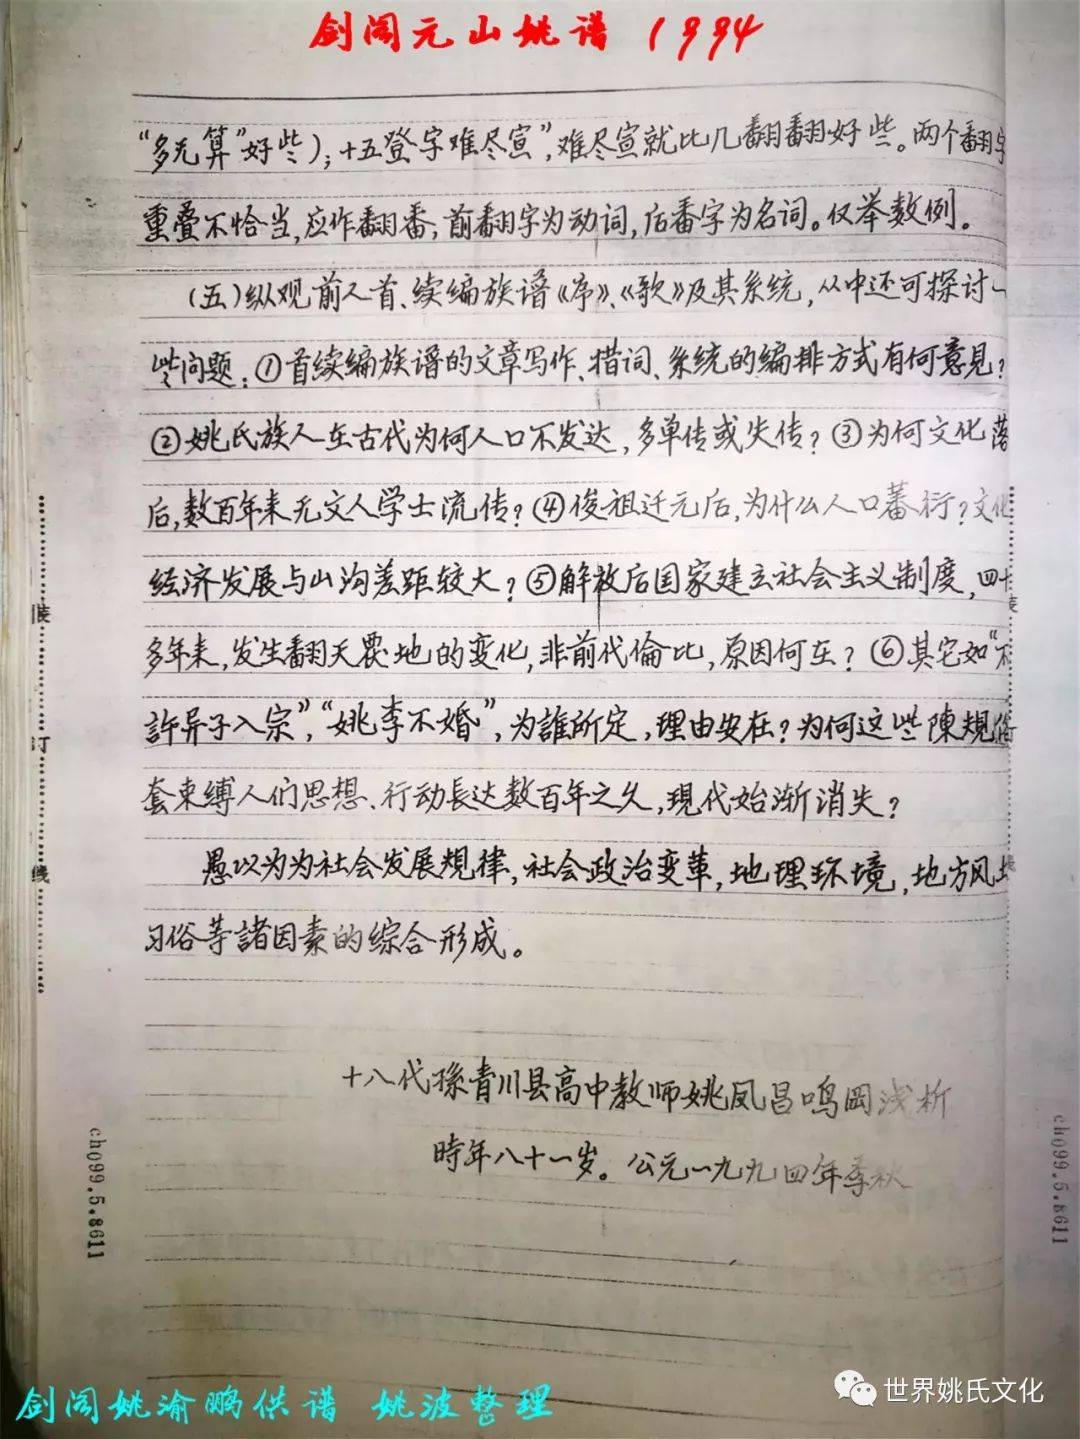 剑阁元山姚谱 1994
“多无算”好些);十五登字难尽宣”,难尽宣就比几翻翻好些。两个翻字
重叠不恰当,应作翻番;前翻字为动词,后番字为名词。仅举数例。
(五)纵观前人首、续编族谱《序》、《歌》及其系统,从中还可探讨一
些问题:①首续编族谱的文章写作、措词、系统的编排方式有何意见?
②姚氏族人在古代为何人口不发达,多单传或失传?③为何文化落
后,数百年来无文人学士流传?④俊祖迁元后,为什么人口蕃衍?文化
经济发展与山沟差距较大?⑤解放后国家建立社会主义制度,四十
多年来,发生翻天震地的变化,非前代倫比,原因何在?⑥其它如“不
許异子入宗”,“姚李不婚”,为誰所定,理由安在?为何这些陳規俗
套束缚人们思想、行动長达数百年之久,現代始渐消失?
愚以为为社会发展規律,社会政治变革,地理环境,地方风土
习俗等諸因素的综合形成。
十八代孫青川县高中教师姚凤昌鸣岡浅析
時年八十一岁。公元一九九四年季秋
装
订
线
装
线
cho99.5.8611
cho99.5.8611
剑阁姚渝鹏供谱 姚波整理
世界姚氏文化